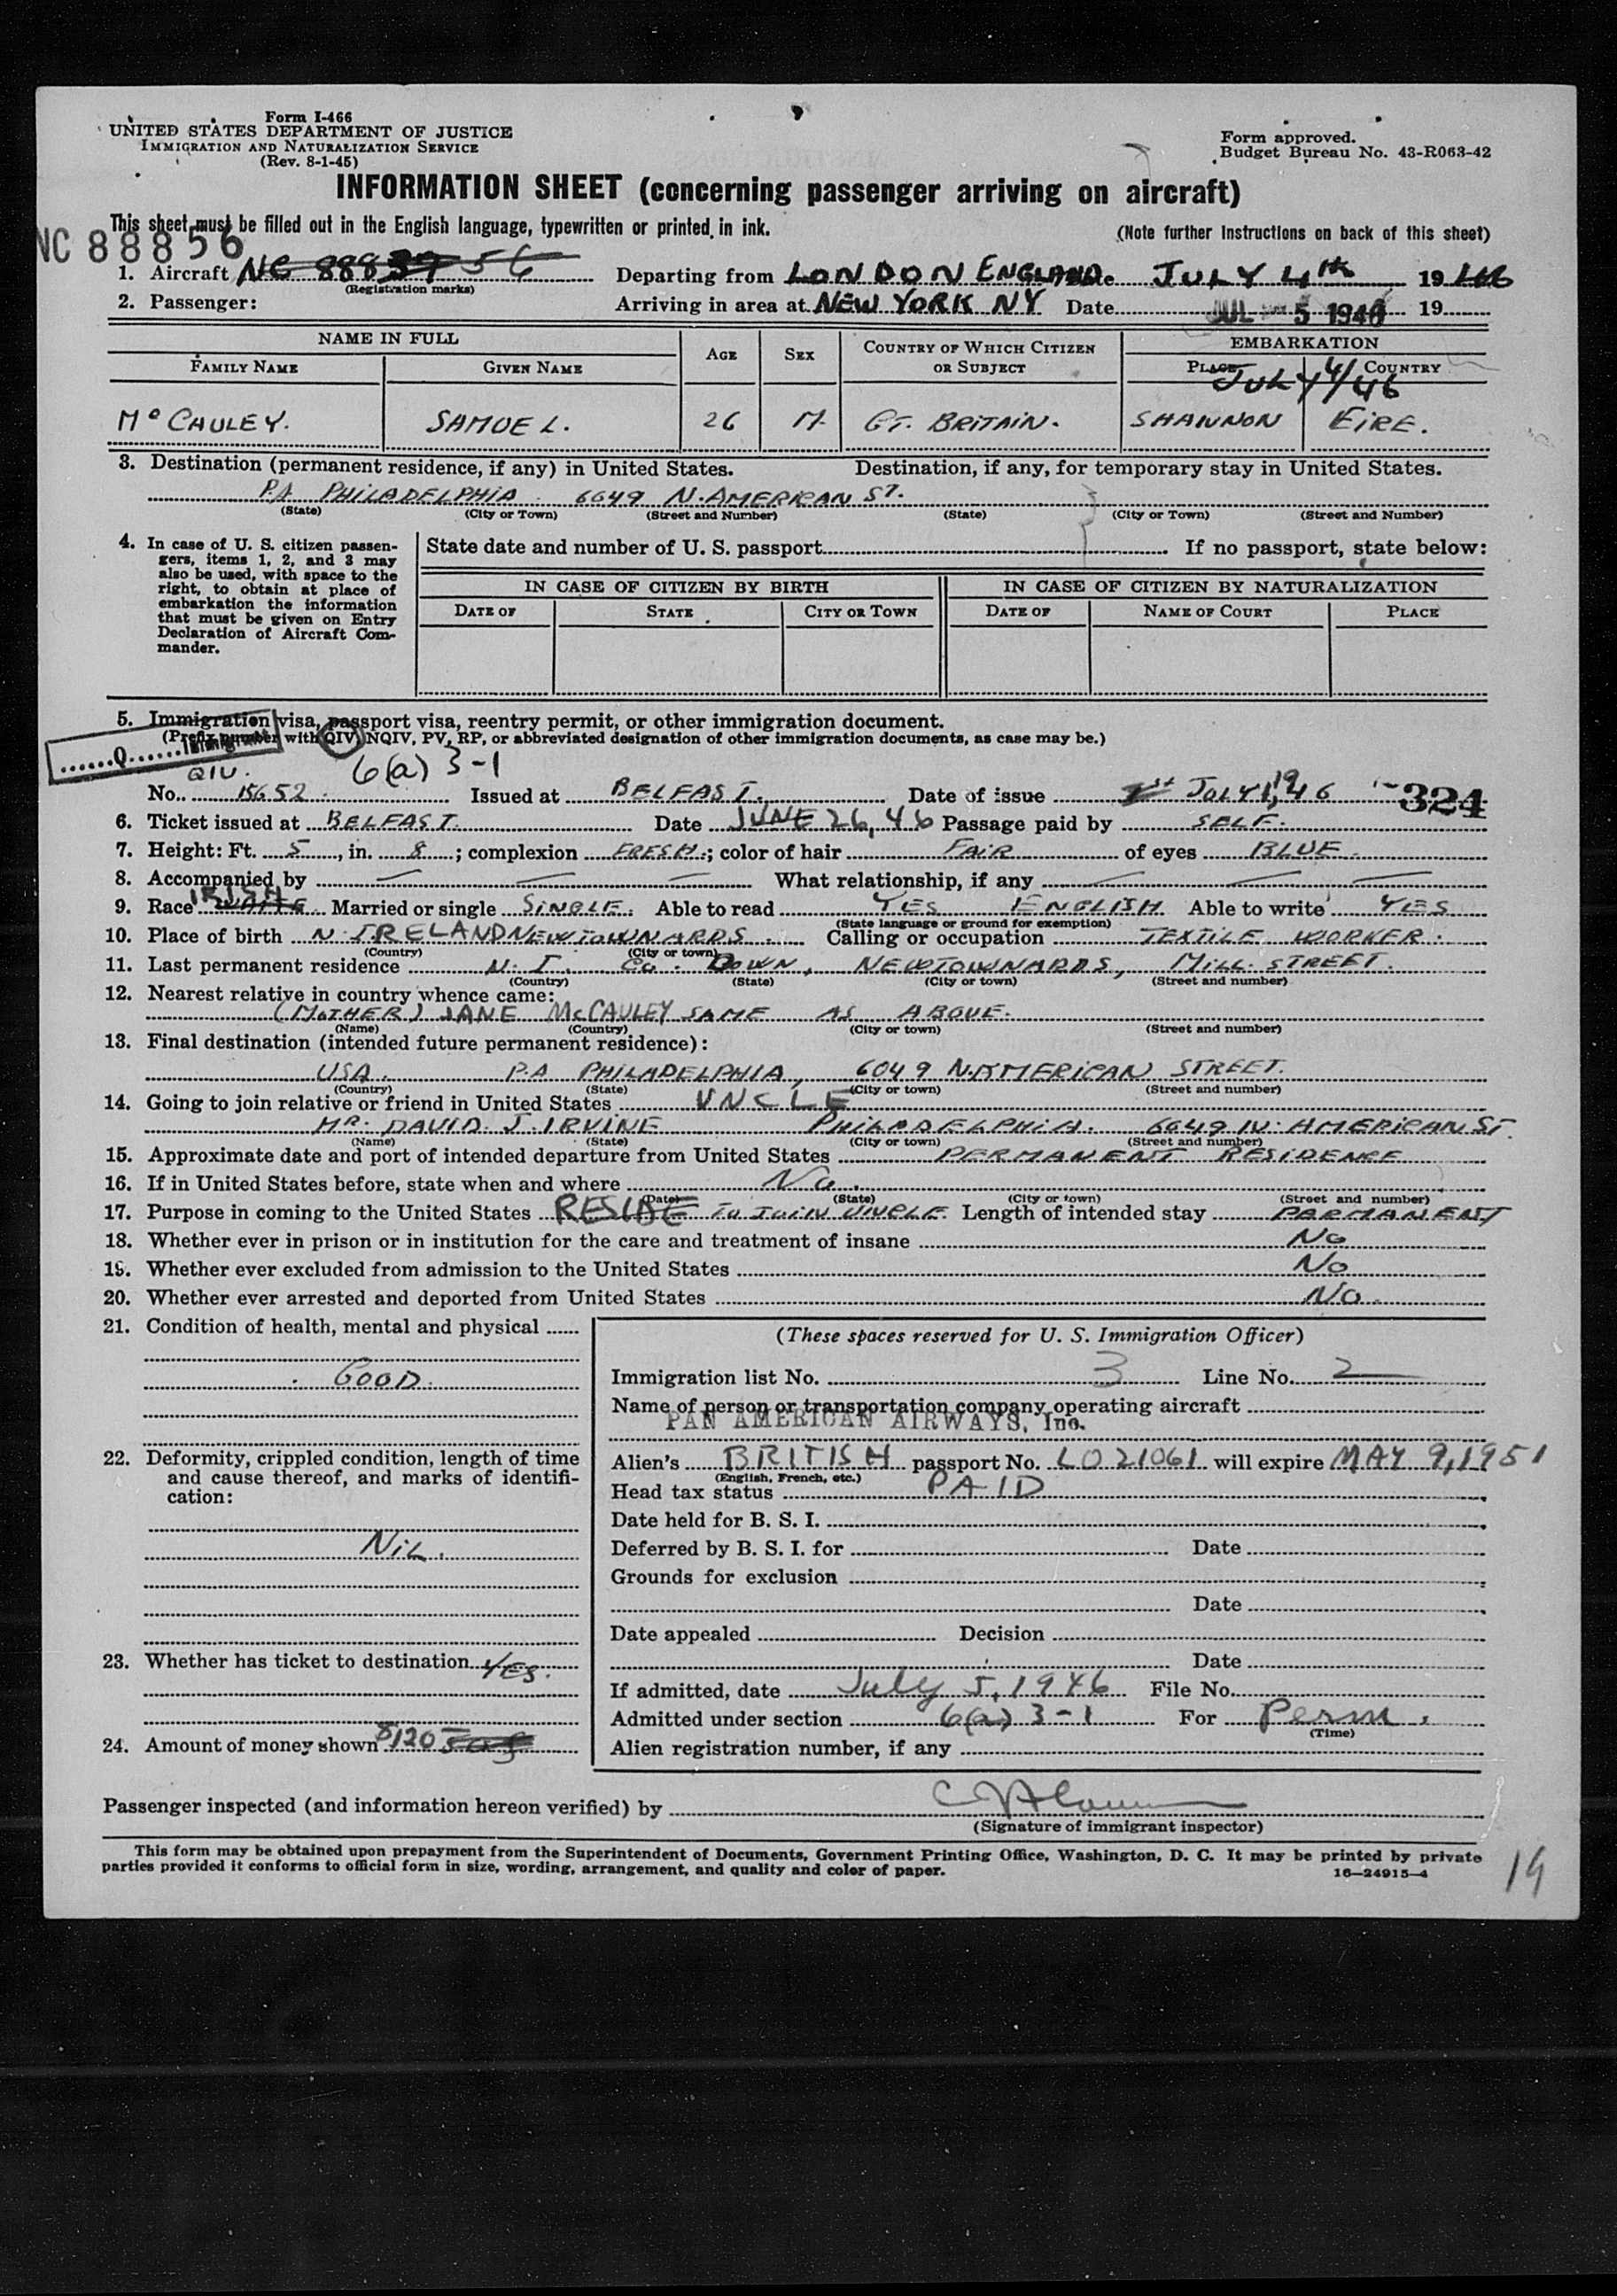 Form I-466
UNITED STATES DEPARTMENT OF JUSTICE
IMMIGRATION AND NATURALIZATION SERVICE
(Rev. 8-1-45)
Form approved.
Budget Bureau No. 43-R063-42
INFORMATION SHEET (concerning passenger arriving on aircraft)
This sheet must be filled out in the English language, typewritten or printed in ink.
(Note further instructions on back of this sheet)
NC 88856
1. Aircraft NC 888 56 Departing from LONDON ENGLAND Date JULY 4th 1946
(Registration marks)
2. Passenger: Arriving in area at NEW YORK NY Date JUL 5 1946 19
NAME IN FULL AGE SEX COUNTRY OF WHICH CITIZEN OR SUBJECT EMBARKATION
FAMILY NAME GIVEN NAME PLACE COUNTRY
JULY 4/46
McCAULEY. SAMUEL. 26 M. GT. BRITAIN. SHANNON EIRE.
3. Destination (permanent residence, if any) in United States. Destination, if any, for temporary stay in United States.
PA PHILADELPHIA 6649 N. AMERICAN ST.
(State) (City or Town) (Street and Number) (State) (City or Town) (Street and Number)
4. In case of U. S. citizen passengers, items 1, 2, and 3 may also be used, with space to the right, to obtain at place of embarkation the information that must be given on Entry Declaration of Aircraft Commander.
State date and number of U. S. passport If no passport, state below:
IN CASE OF CITIZEN BY BIRTH IN CASE OF CITIZEN BY NATURALIZATION
DATE OF STATE CITY OR TOWN DATE OF NAME OF COURT PLACE
5. Immigration visa, passport visa, reentry permit, or other immigration document.
(Prefix number with QIV, NQIV, PV, RP, or abbreviated designation of other immigration documents, as case may be.)
Q Immigrant
QIV. 6(a) 3-1
No. 15652 Issued at BELFAST. Date of issue 1st JULY 1, 1946 324
6. Ticket issued at BELFAST. Date JUNE 26, 46 Passage paid by SELF.
7. Height: Ft. 5, in. 8; complexion FRESH; color of hair FAIR of eyes BLUE.
8. Accompanied by What relationship, if any
9. Race IRISH WHITE Married or single SINGLE. Able to read YES ENGLISH Able to write YES
(State language or ground for exemption)
10. Place of birth N. IRELAND NEWTOWNARDS. Calling or occupation TEXTILE WORKER.
(Country) (City or town)
11. Last permanent residence N. I. Co. DOWN, NEWTOWNARDS, MILL STREET.
(Country) (State) (City or town) (Street and number)
12. Nearest relative in country whence came:
(MOTHER) JANE McCAULEY SAME AS ABOVE.
(Name) (Country) (City or town) (Street and number)
13. Final destination (intended future permanent residence):
USA. PA PHILADELPHIA, 6049 N. AMERICAN STREET.
(Country) (State) (City or town) (Street and number)
14. Going to join relative or friend in United States UNCLE
MR. DAVID J. IRVINE PHILADELPHIA. 6649 N. AMERICAN ST.
(Name) (State) (City or town) (Street and number)
15. Approximate date and port of intended departure from United States PERMANENT RESIDENCE
16. If in United States before, state when and where No.
(Date) (State) (City or town) (Street and number)
17. Purpose in coming to the United States RESIDE TO JOIN UNCLE Length of intended stay PARMANENT
18. Whether ever in prison or in institution for the care and treatment of insane No
19. Whether ever excluded from admission to the United States No
20. Whether ever arrested and deported from United States No.
21. Condition of health, mental and physical
GOOD.
22. Deformity, crippled condition, length of time and cause thereof, and marks of identification:
NIL.
23. Whether has ticket to destination YES.
24. Amount of money shown $120
(These spaces reserved for U. S. Immigration Officer)
Immigration list No. 3 Line No. 2
Name of person or transportation company operating aircraft
PAN AMERICAN AIRWAYS, Inc.
Alien's BRITISH passport No. LO 21061 will expire MAY 9, 1951
(English, French, etc.)
Head tax status PAID
Date held for B. S. I.
Deferred by B. S. I. for Date
Grounds for exclusion
Date
Date appealed Decision
Date
If admitted, date July 5, 1946 File No.
Admitted under section 6(a) 3-1 For Perm.
(Time)
Alien registration number, if any
Passenger inspected (and information hereon verified) by
(Signature of immigrant inspector)
This form may be obtained upon prepayment from the Superintendent of Documents, Government Printing Office, Washington, D. C. It may be printed by private
parties provided it conforms to official form in size, wording, arrangement, and quality and color of paper.
16—24915-4
19